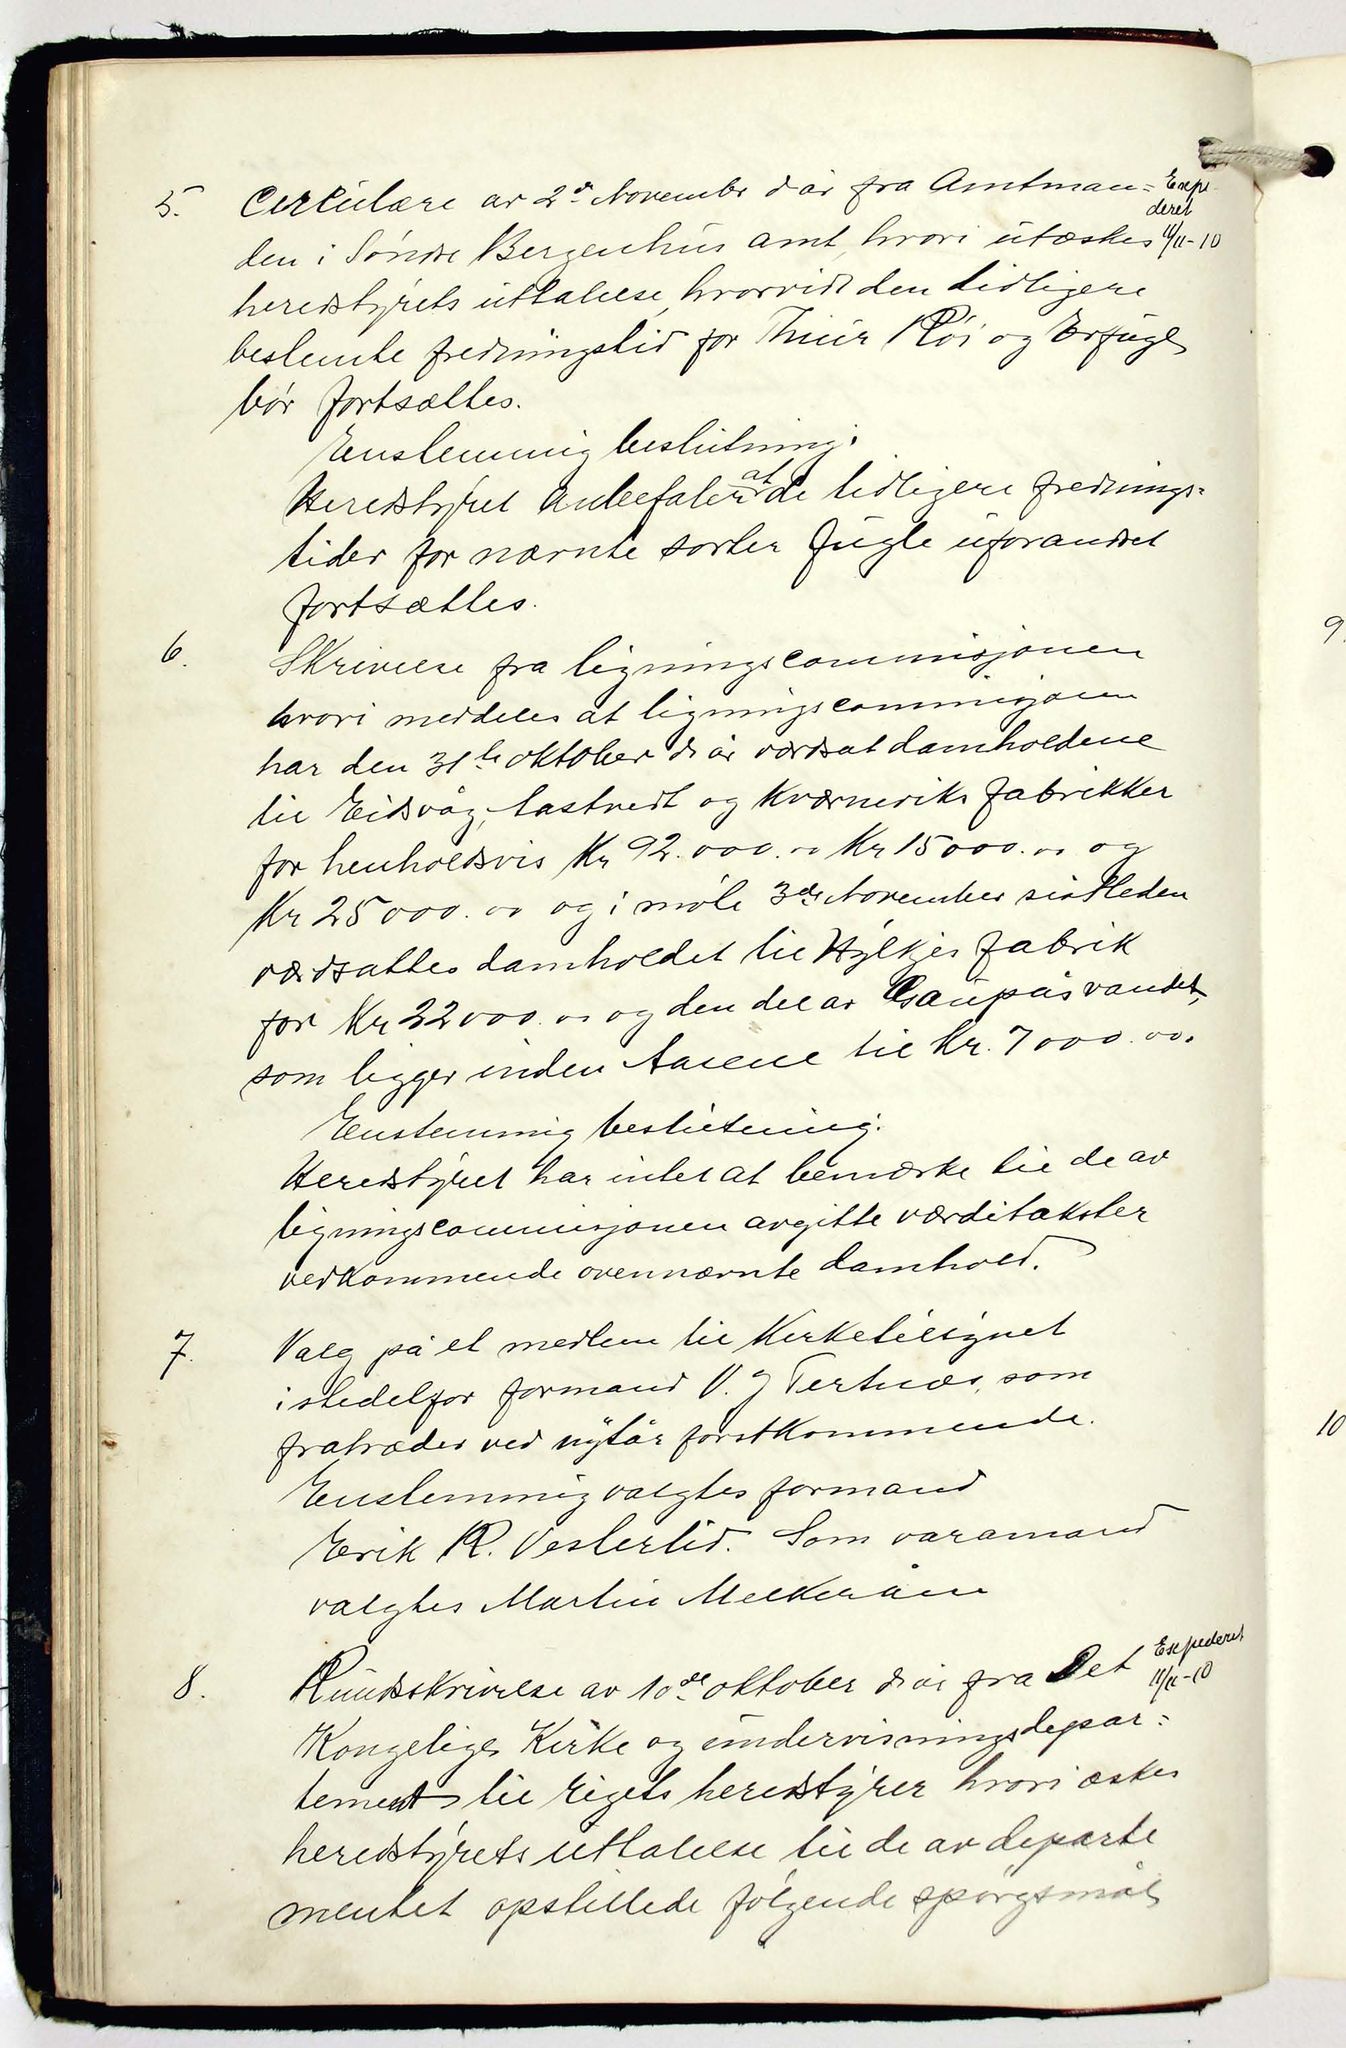 5. Cirkulære av 2de November d år fra Amtman=
Expe-
deret
11/11-10
den i Söndre Bergenhus amt, hvori utæskes
heredstyrets uttalelse, hvorvidt den tidligere
bestemte fredningstid for Thiur Röi og Erfugl
bör fortsættes.
Enstemmig beslutning:
Heredstyret anbefaler at de tidligere frednings=
tider for nævnte sorter fugle uforandret
fortsættes.
6. Skrivelse fra ligningscommisjonen
hvori meddeles at ligningscommisjonen
har den 31te oktober d år værdsat damholdene
til Eidsvåg, Hastvedt og Kværneviks fabrikker
for henholdsvis Kr 92.000.00 Kr 15000.00 og
Kr 25000.00 og i möte 3de November sidstleden
værdsattes damholdet til Hylkjes fabrik
for Kr 22000.00 og den del av Gaupåsvandet,
som ligger inden Aasene til Kr. 7000.00.
Enstemmig beslutning:
Heredstyret har intet at bemærke til de av
ligningscommisjonen avgitte værditakster
vedkommende ovennævnte damhold.
7. Valg på et medlem til Kirketilsynet
istedetfor formand V. J Tertnæs, som
fratræder ved nytår förstkommende.
Enstemmig valgtes formand
Erik R. Vesterlid. Som varamand
valgtes Martin Melkeråen
8. Rundskrivelse av 10de oktober d år fra Det
Expederet
11/11-10
Kongelige Kirke og undervisningsdepar=
tement til rigets heredstyrer hvori æskes
heredstyrets uttalelse til de av departe
mentet opstillede følgende spörgsmål
9.
10